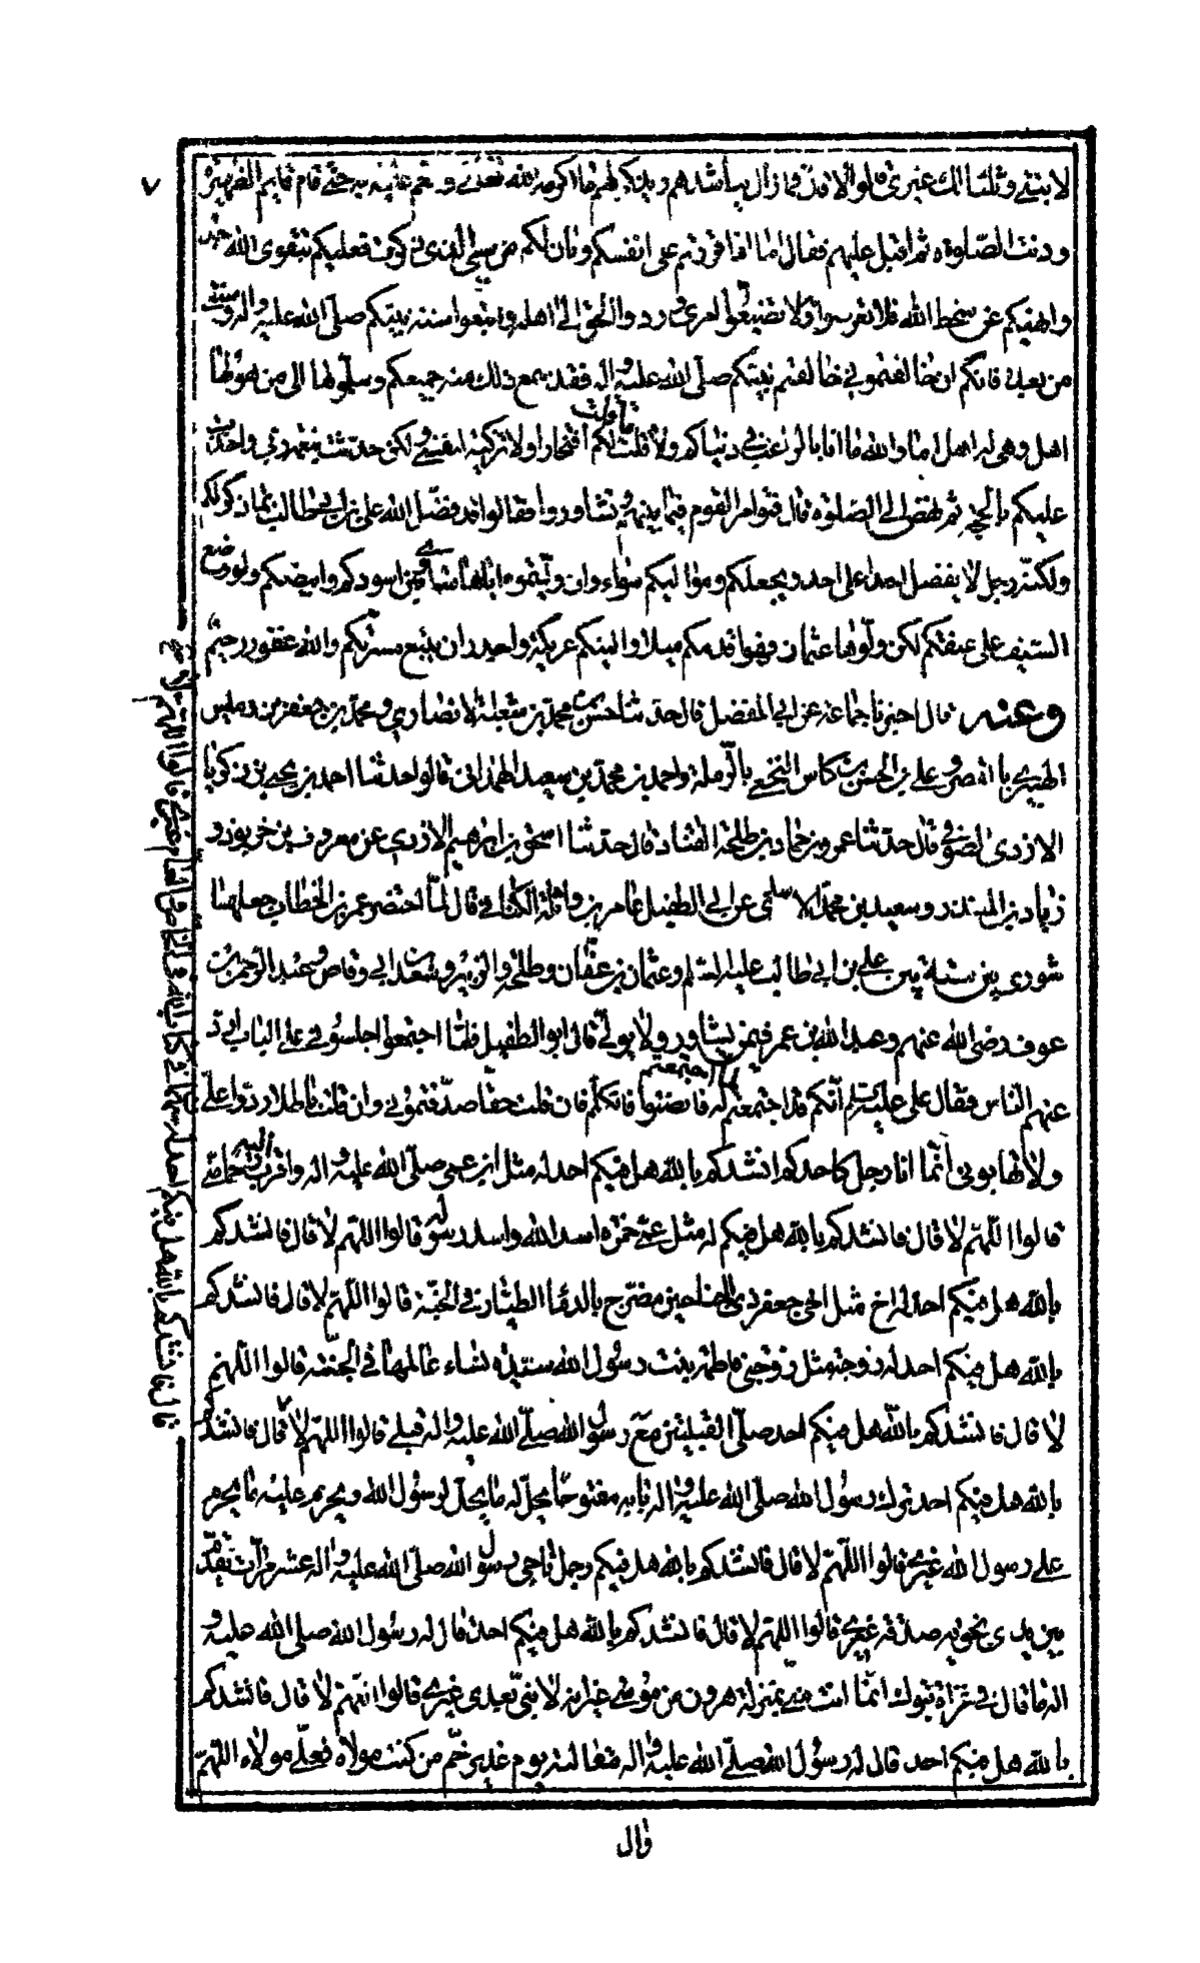 لابنتي وتلتا لك غيري قالوا لا قال فما زال يناشدهم ويذكر لهم ما اكرمه الله تعالى حتى قام قايم الظهيرة
ودنت الصلوة ثم اقبل عليهم فقال اما اذا اقررتم على انفسكم وبان لكم من سببي الذي ذكرت فعليكم بتقوى الله
وانهيكم عن سخط الله فلا تعرضوا ولا تضيعوا امري وردوا الحق الى اهله واتبعوا سنة نبيكم صلى الله عليه واله وسنتي
من بعدي فانكم ان خالفتموني خالفتم نبيكم صلى الله عليه واله فقد سمع ذلك منه جميعكم وسلموها الى من هو لها
اهل وهي له اهل اما والله ما انا بالراغب في دنياكم ولا قلت ما قلت لكم افتخارا ولا تزكية لنفسي ولكن حدثت بنعمة ربي واخذت
عليكم بالحجة ثم نهض الى الصلوة قال فتوامر القوم فيما بينهم وتشاوروا فقالوا قد فضل الله علي بن ابي طالب بما ذكر لكم
ولكنه رجل لا يفضل احدا على احد ويجعلكم ومواليكم سواء وان وليتموه اياها ساوى بين اسودكم وابيضكم ولو وضع
السيف على عنقكم لكن ولوها عثمان فهو اقدمكم ميلا والينكم عريكة واجدر ان يتبع مسرتكم والله غفور رحيم
وعنه قال اخبرنا جماعة عن ابي المفضل قال حدثنا حسن بن محمد بن شعبة الانصاري ومحمد بن جعفر بن رميس
الهبيري بالقصر وعلي بن الحسين بن كاس النخعي بالرملة واحمد بن محمد بن سعيد الهمداني قالوا حدثنا احمد بن يحيى بن زكريا
الازدي الصوفي قال حدثنا عمرو بن حماد بن طلحة القناد قال حدثنا اسحق بن ابرهيم الازدي عن معروف بن خربوذ و
زياد بن المنذر وسعيد بن محمد الاسلمي عن ابي الطفيل عامر بن واثلة الكناني قال لما احتضر عمر بن الخطاب جعلها
شورى بين ستة بين علي بن ابي طالب عليه السلم وعثمان بن عفان وطلحة والزبير وسعد بن ابي وقاص وعبد الرحمن بن
عوف رضي الله عنهم وعبد الله بن عمر فيمن يشاور ولا يولى قال ابو الطفيل فلما اجتمعوا اجلسوني على الباب ارد
عنهم الناس فقال علي عليه السلم انكم قد اجتمعتم لما اجتمعتم له فانصتوا فاتكلم فان قلت حقا صدقتموني وان قلت باطلا ردوا علي
ولا تهابوني انما انا رجل كاحدكم انشدكم بالله هل فيكم احد له مثل ابن عمي صلى الله عليه واله واقرب اليه رحما مني
قالوا اللهم لا قال فانشدكم بالله هل فيكم له مثل عمي حمزة اسد الله واسد رسوله قالوا اللهم لا قال فانشدكم
بالله هل فيكم احد له اخ مثل اخي جعفر ذي الجناحين مضرج بالدماء الطيار في الجنة قالوا اللهم لا قال فانشدكم
بالله هل فيكم احد له زوجة مثل زوجتي فاطمة بنت رسول الله سيدة نساء عالمها في الجنة قالوا اللهم
لا قال فانشدكم بالله هل فيكم احد صلى القبلتين مع رسول الله صلى الله عليه واله قبلي قالوا اللهم لا قال فانشدكم
بالله هل فيكم احد ترك رسول الله صلى الله عليه واله بابه مفتوحا يحل له ما يحل لرسول الله ويحرم عليه ما يحرم
على رسول الله غيري قالوا اللهم لا قال فانشدكم بالله هل فيكم رجل ناجى رسول الله صلى الله عليه واله عشر مرات يقدم
بين يدي نجويه صدقة غيري قالوا اللهم لا قال فانشدكم بالله هل فيكم احد قال له رسول الله صلى الله عليه و
اله ما قال في غزاة تبوك انما انت مني بمنزلة هرون من موسى غير انه لا نبي بعدي غيري قالوا اللهم لا قال فانشدكم
بالله هل فيكم احد قال له رسول الله صلى الله عليه واله مقالته يوم غدير خم من كنت مولاه فعلي مولاه اللهم
وال
قال فانشدكم بالله هل فيكم احد له سهمان في كتاب الله في الخاص والعام غيري قالوا اللهم لا
٧